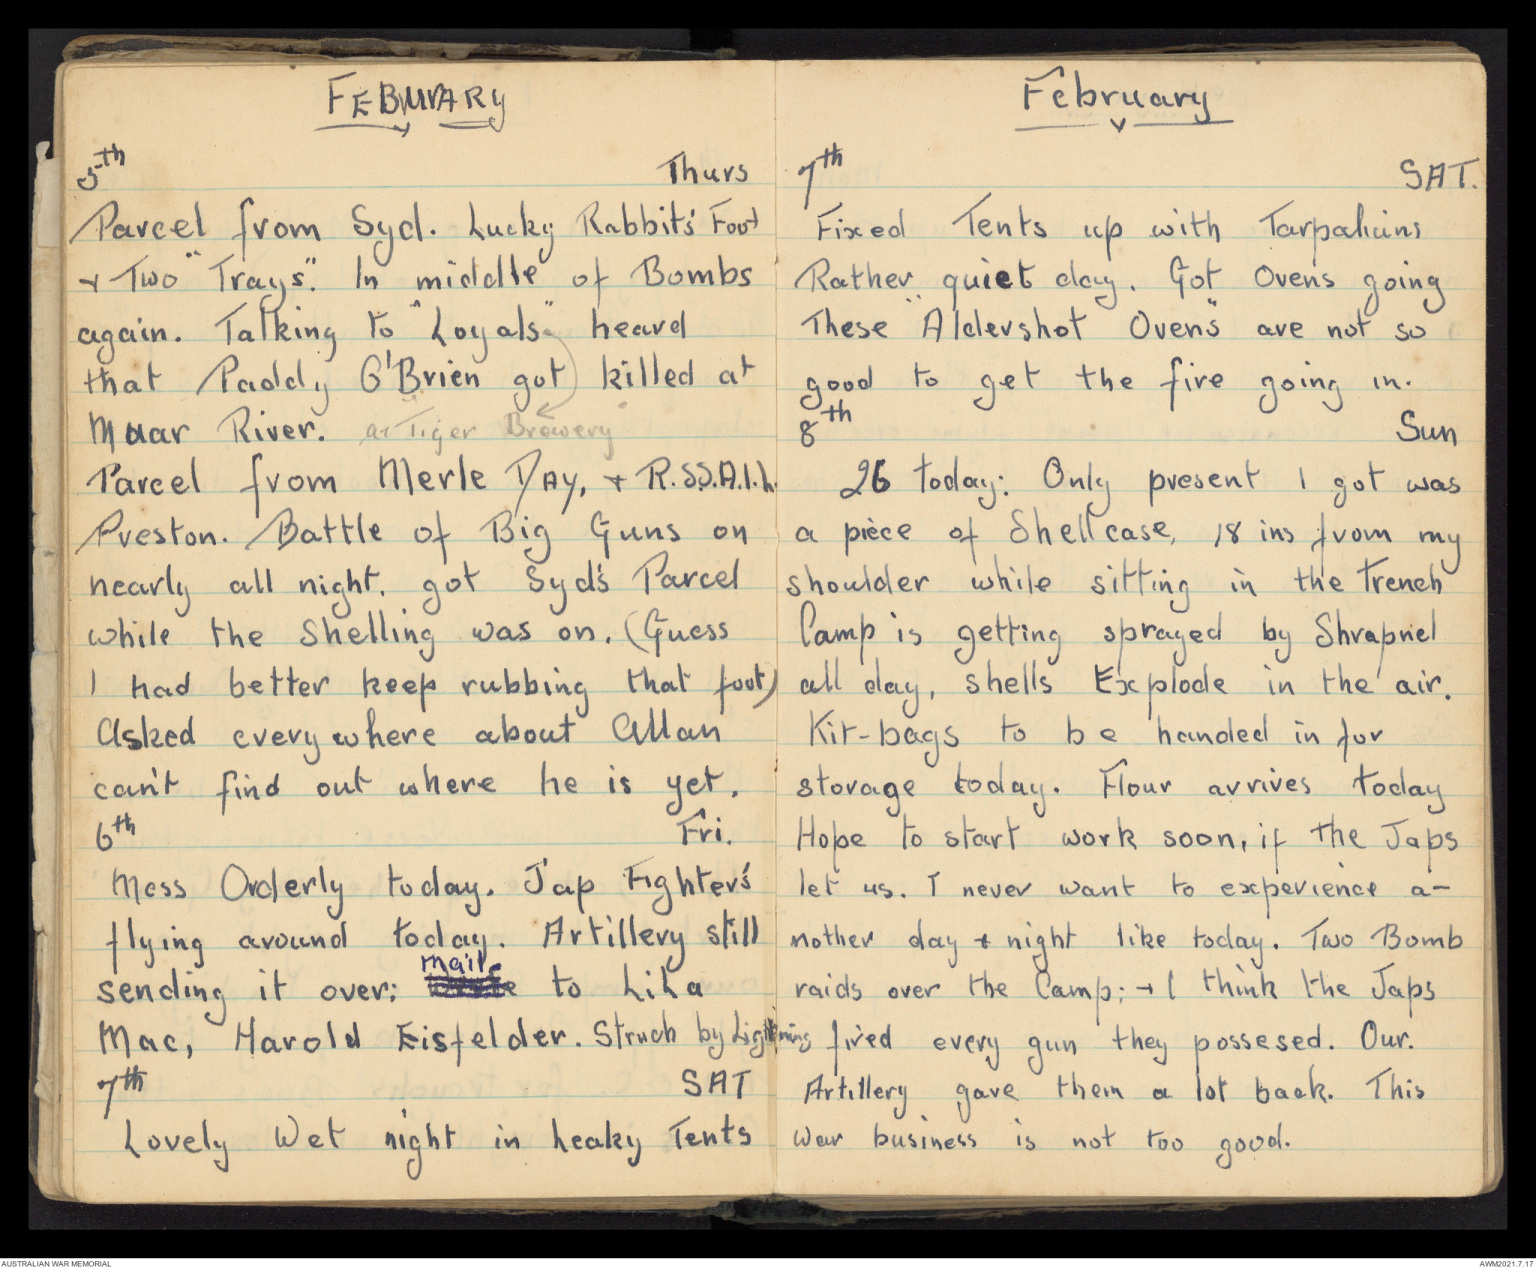 FEBUARY
5th Thurs
Parcel from Syd. Lucky Rabbit's Foot
+ Two "Trays". In middle of Bombs
again. Talking to "Loyals" heard
that Paddy O'Brien got killed at
Muar River. at Tiger Brewery
Parcel from Merle DAy, + R.S.S.A.I.L.
Preston. Battle of Big Guns on
nearly all night. got Syd's Parcel
while the Shelling was on. (Guess
I had better keep rubbing that foot)
Asked everywhere about Allan
can't find out where he is yet.
6th Fri.
Mess Orderly today. Jap Fighter's
flying around today. Artillery still
sending it over; mail to Lila
Mac, Harold Eisfelder. Struck by Lightning
7th SAT
Lovely Wet night in leaky Tents
February
7th SAT.
Fixed Tents up with Tarpalians
Rather quiet day. Got Ovens going
These "Aldershot Ovens" are not so
good to get the fire going in.
8th Sun
26 today: Only present I got was
a piece of Shellcase, 18 ins from my
shoulder while sitting in the Trench
Camp is getting sprayed by Shrapnel
all day, shells Explode in the air.
Kit-bags to be handed in for
storage today. Flour arrives today
Hope to start work soon, if the Japs
let us. I never want to experience a-
nother day + night like today. Two Bomb
raids over the Camp; + I think the Japs
fired every gun they possesed. Our.
Artillery gave them a lot back. This
war business is not too good.
AUSTRALIAN WAR MEMORIAL
AWM2021.7.17